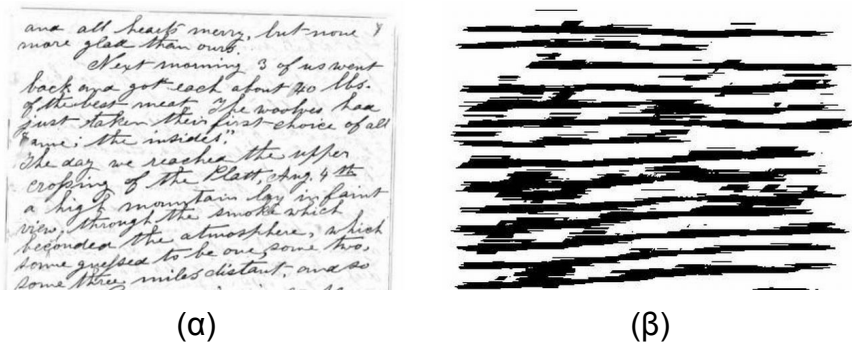 and all hearts merry, but none 8
more glad than ours.
Next morning 3 of us went
back and got each about 40 lbs.
of the best meat. The woolves had
just taken their first choice of all
ame: the insides."
The day we reached the upper
crossing of the Platt, Aug. 4th
a high mountain lay in faint
view, through the smoke which
beconded the atmosphere, which
some guessed to be one, some two,
some three miles distant, and so
(α) (β)